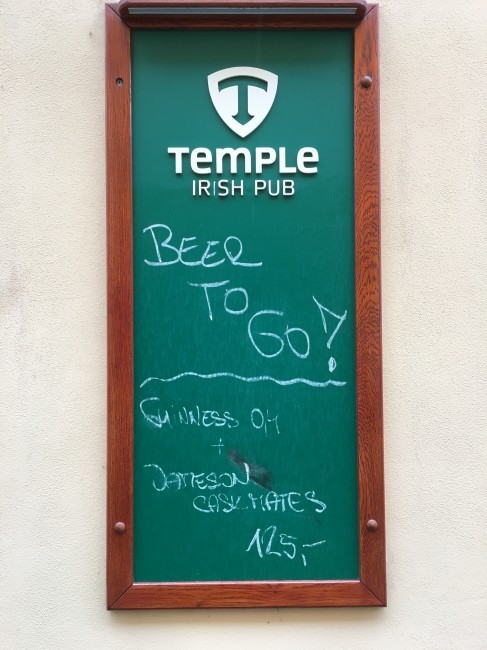 T
TEMPLE
IRISH PUB
BEER
TO
GO!
GUINNESS 0,4
+
JAMESON
CASKMATES
125,-